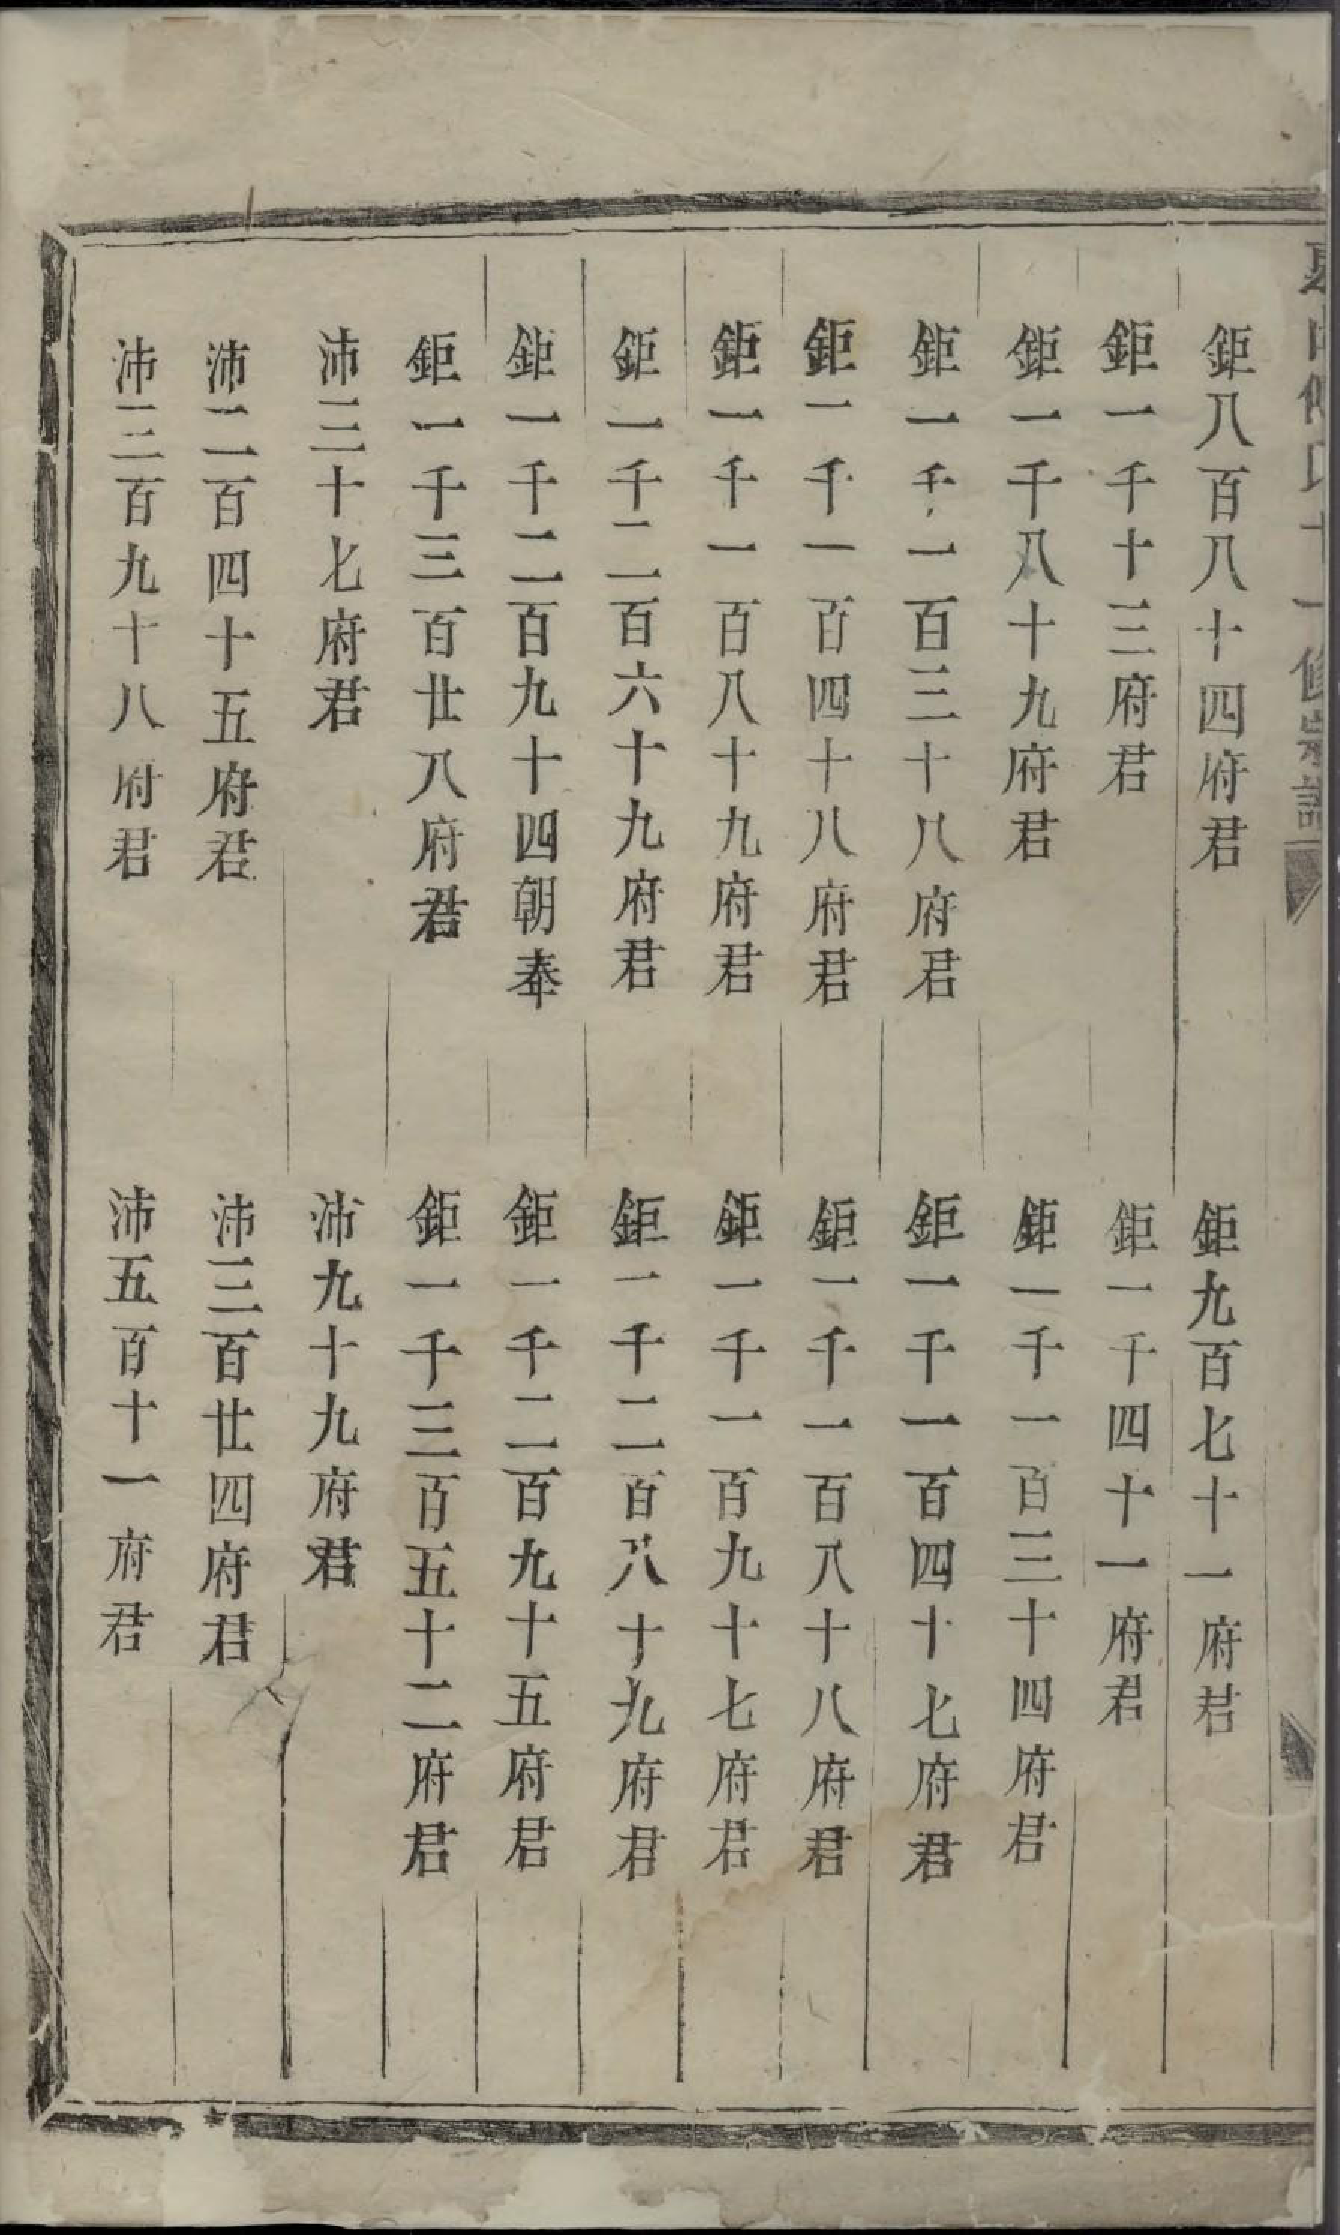 氏十一修宗譜
鉅八百八十四府君
鉅九百七十一府君
鉅一千十三府君
鉅一千四十一府君
鉅一千八十九府君
鉅一千一百三十四府君
鉅一千一百三十八府君
鉅一千一百四十七府君
鉅一千一百四十八府君
鉅一千一百八十八府君
鉅一千一百八十九府君
鉅一千一百九十七府君
鉅一千二百六十九府君
鉅一千二百八十九府君
鉅一千二百九十四朝奉
鉅一千二百九十五府君
鉅一千三百廿八府君
鉅一千三百五十二府君
沛三十七府君
沛九十九府君
沛二百四十五府君
沛三百廿四府君
沛三百九十八府君
沛五百十一府君